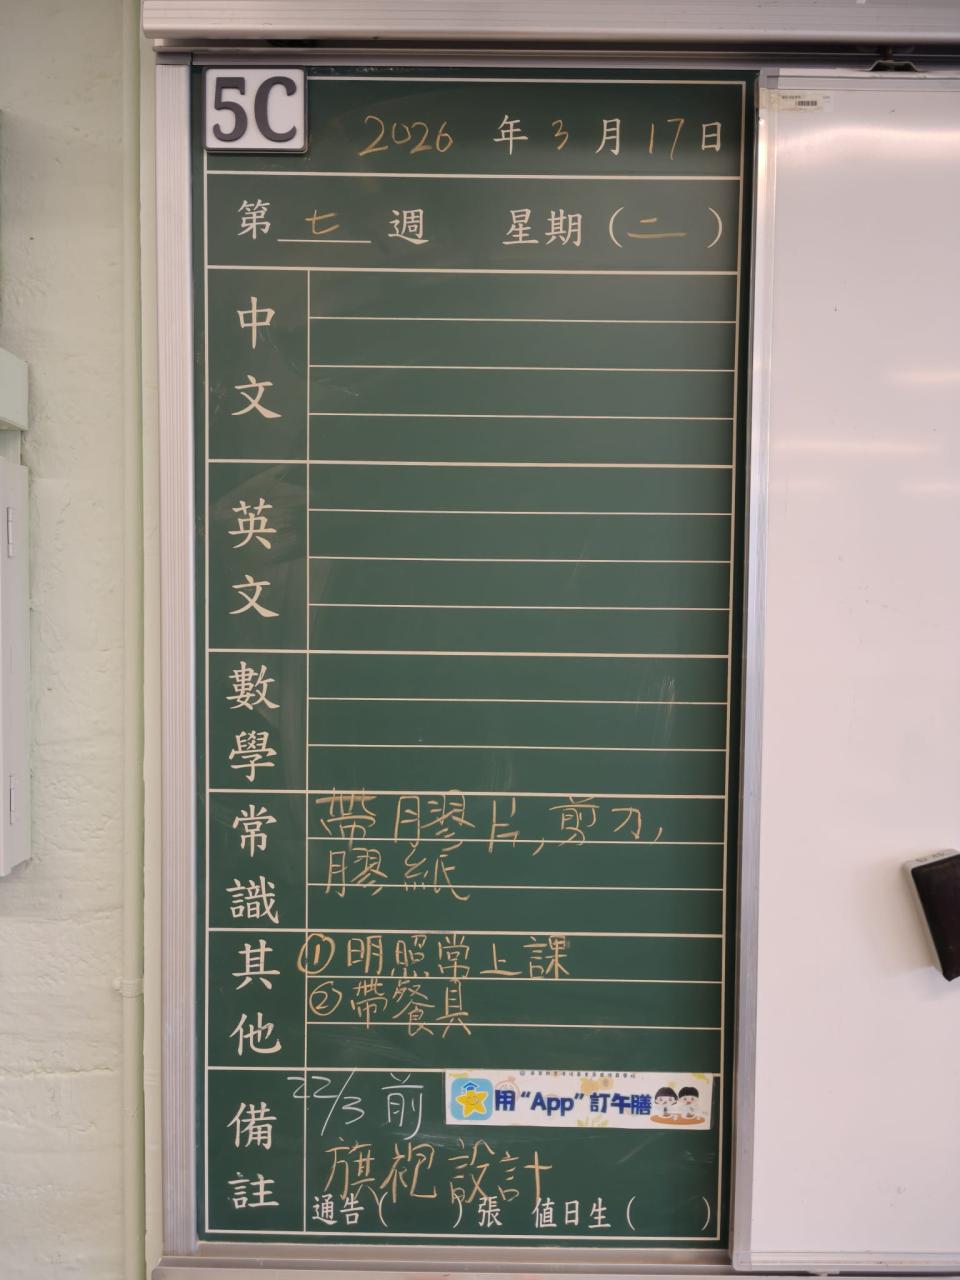 5C
2026 年 3 月 17 日
第 七 週 星期 ( 二 )
中文
英文
數學
常識
帶膠片,剪刀,
膠紙
其他
① 明照常上課
② 帶餐具
備註
22/3 前
用“App”訂午膳
旗袍設計
通告( )張 值日生( )